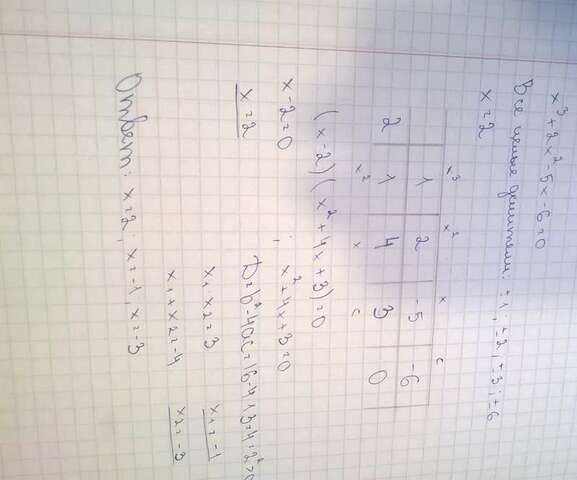 x³+2x²-5x-6=0
Все целые делители: ±1; ±2; ±3; ±6
x=2
x³ x² x c
1 2 -5 -6
2 1 4 3 0
x² x c
(x-2)(x²+4x+3)=0
x-2=0 ; x²+4x+3=0
x=2 D=b²-4ac=16-4·1·3=4=2²>0
x₁·x₂=3 x₁=-1
x₁+x₂=-4 x₂=-3
Ответ: x=2; x=-1, x=-3